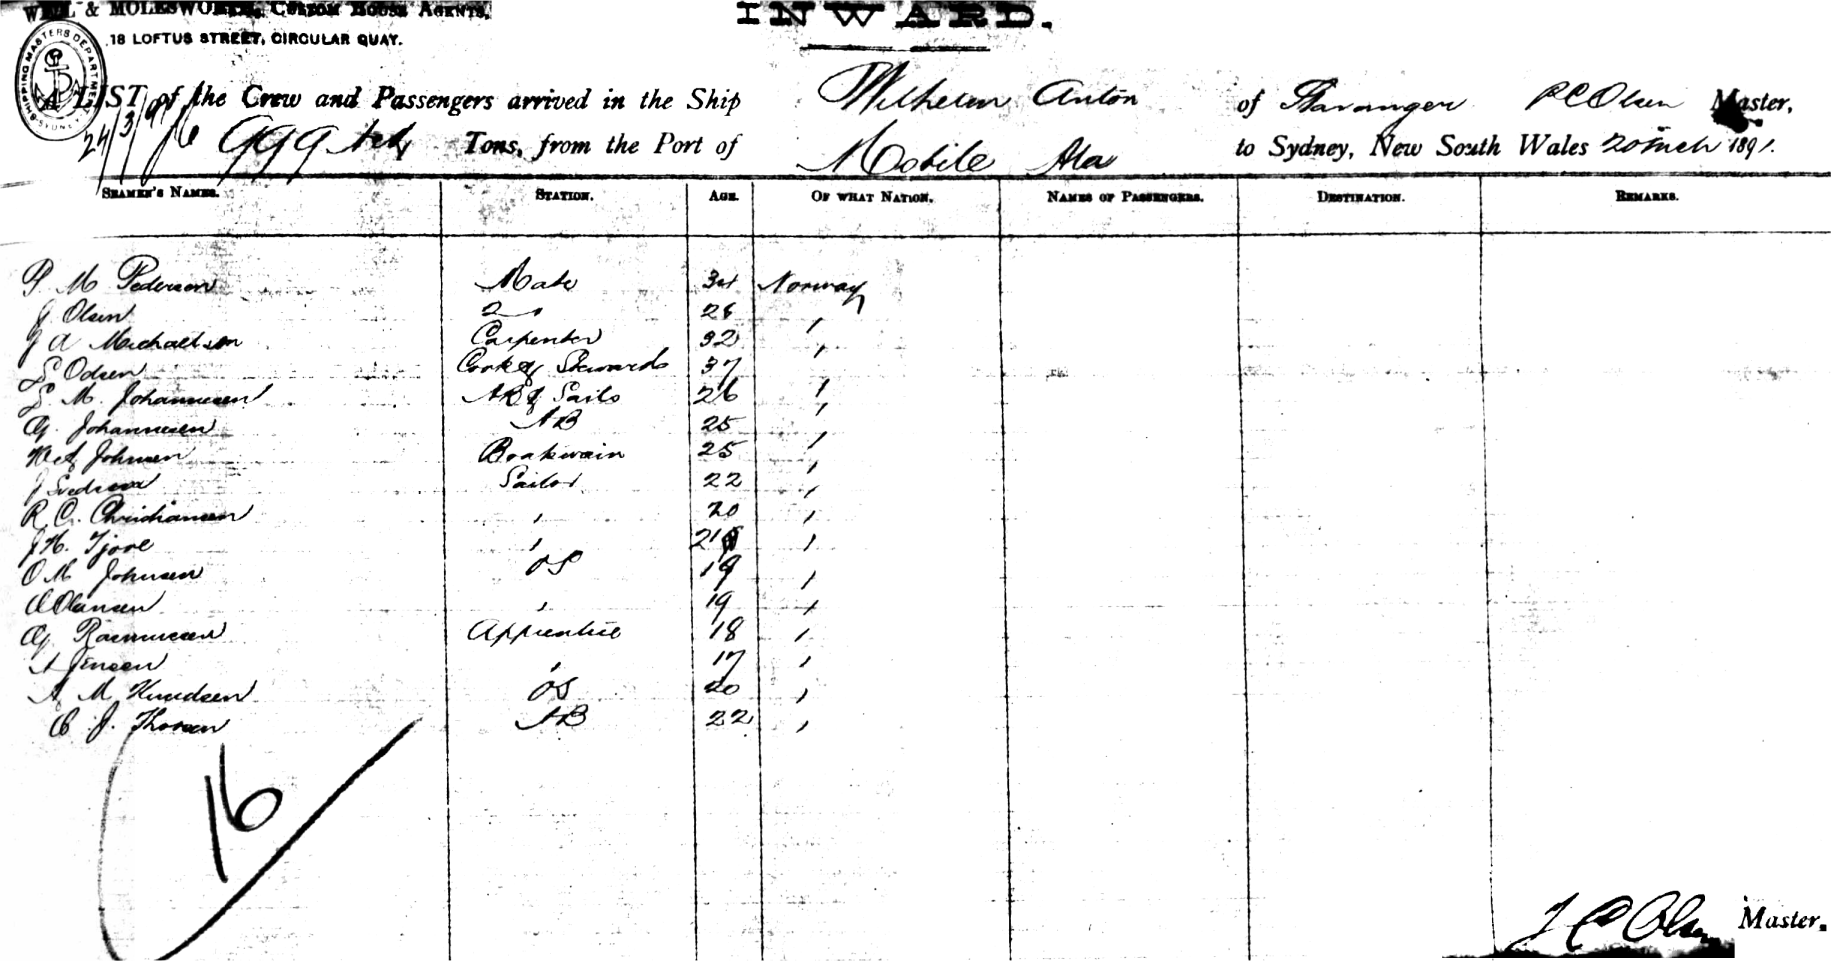 WEIL & MOLESWORTH, CUSTOM HOUSE AGENTS,
18 LOFTUS STREET, CIRCULAR QUAY.
INWARD.
SHIPPING MASTERS DEPARTMENT SYDNEY
A LIST of the Crew and Passengers arrived in the Ship Wilhelm Anton of Stavanger P C Olsen Master,
24/3/91
999 Tons, from the Port of Mobile Ala to Sydney, New South Wales 20 Mch 1891.
SEAMEN'S NAMES. STATION. AGE. OF WHAT NATION. NAMES OF PASSENGERS. DESTINATION. REMARKS.
P M Pederson Mate 34 Norway
J Olsen 2 " 26 "
J A Michaelson Carpenter 32 "
L Odsen Cook & Steward 37 "
L M. Johannesen AB & Sails 26 "
G. Johannesen AB 25 "
Johnsen Boatswain 25 "
J Sailor 22 "
R C. Christiansen " 20 "
J H. Tjove " 21 "
O M Johnsen OS 19 "
O Olansen " 19 "
G. Rasmussen Apprentice 18 "
A Jensen " 17 "
A M Knudsen OS 20 "
C. J. Thorsen AB 22 "
16
P C Olsen Master.